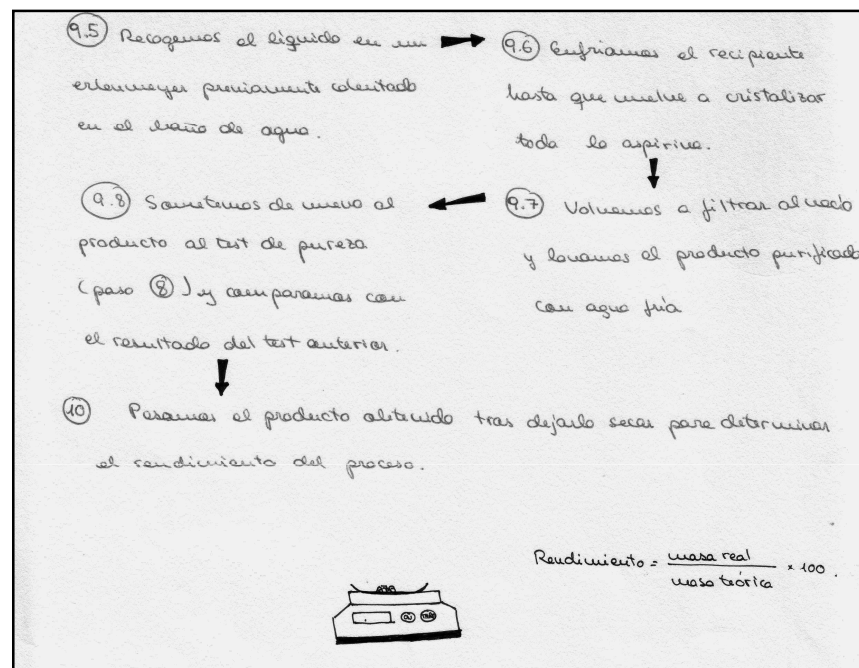 9.5 Recogemos el líquido en un
erlenmeyer previamente calentado
en el baño de agua.
9.6 Enfriamos el recipiente
hasta que vuelve a cristalizar
toda la aspirina.
9.7 Volvemos a filtrar al vacío
y lavamos el producto purificado
con agua fría
9.8 Sometemos de nuevo al
producto al test de pureza
(paso 8) y comparamos con
el resultado del test anterior.
10 Pesamos el producto obtenido tras dejarlo secar para determinar
el rendimiento del proceso.
Rendimiento = masa real / masa teórica × 100.